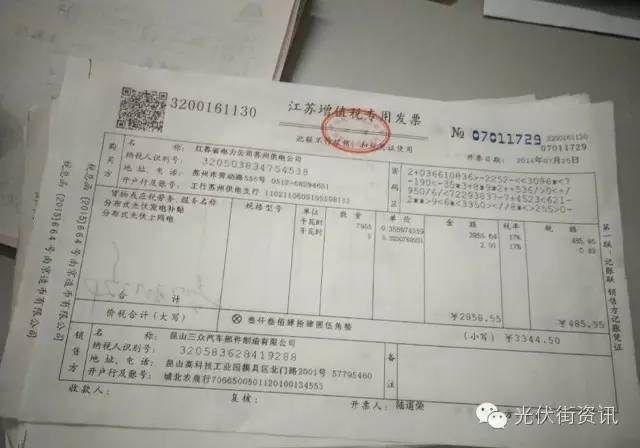 3200161130
江苏增值税专用发票
№ 07011729
3200161130
07011729
此联不作报销、扣税凭证使用
开票日期：2016年07月25日
购买方
名称：江苏省电力公司苏州供电公司
纳税人识别号：320503834754538
地址、电话：苏州市劳动路555号 0512-68294651
开户行及账号：工行苏州供电支行
密码区
货物或应税劳务、服务名称
规格型号
单位
数量
单价
金额
税率
税额
分布式光伏发电补贴
千瓦时
7955
17%
485.66
分布式光伏上网电
千瓦时
17%
合计
￥2858.55
￥485.95
价税合计（大写）
叁仟叁佰肆拾肆圆伍角整
（小写）
￥3344.50
销售方
名称：昆山三众汽车部件制造有限公司
纳税人识别号：320583628419288
地址、电话：昆山高科技工业园模具区北门路2001号 57795460
开户行及账号：城北农商行7066500501120100134553
备注
收款人：
复核：
开票人：陆道荣
第一联：记账联 销售方记账凭证
税总函〔2015〕664号南京造币有限公司
税总函〔2015〕664号南京造币有限公司
光伏街资讯